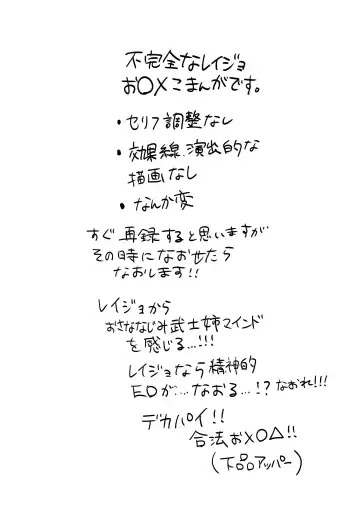 不完全なレイジョ
お〇×こまんがです。
・セリフ調整なし
・効果線.演出的な
描画なし
・なんか変
すぐ再録すると思いますが
その時になおせたら
なおします!!
レイジョから
おさななじみ武士姉マインド
を感じる...!!!
レイジョなら精神的
EDが...なおる...!?なおれ!!!
デカパイ!!
合法お×〇△!!
(下品アッパー)